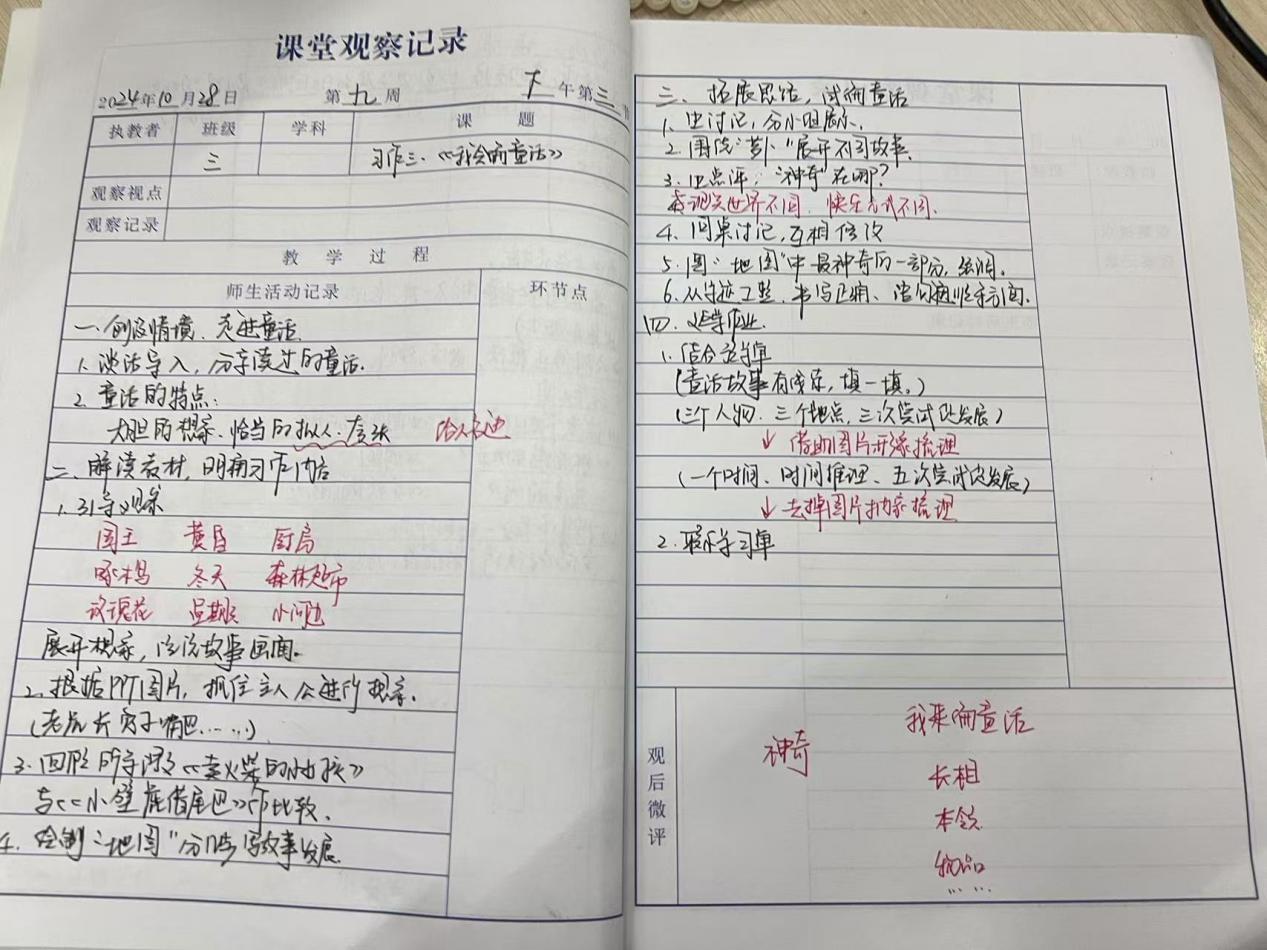 课堂观察记录
2024年10月28日 第九周 下午第三节
执教者 班级 学科 课题
三 习作三、《我会编童话》
观察视点
观察记录
教学过程
师生活动记录 环节点
一、创设情境、走进童话
1. 谈话导入，分享读过的童话.
2. 童话的特点：
大胆的想象、恰当的拟人、夸张
二、解读教材，明确习作内容
1. 引导观察
国王 黄昏 厨房
啄木鸟 冬天 森林超市
玫瑰花 星期天 小河边
展开想象，说说故事画面.
2. 根据PPT图片，抓住主人公进行想象.
(老虎长兔子嘴巴……)
3. 回顾所学课文《卖火柴的小女孩》
与《小壁虎借尾巴》作比较.
4. 绘制“地图”分阶段写故事发展
三、拓展思路，试编童话
1. 生讨论，分小组展示.
2. 围绕“萝卜”展开不同故事.
3. 师点评：“神奇”在哪？
表现为世界不同 快乐方式不同.
4. 同桌讨论，互相修改
5. 圈“地图”中最神奇的一部分，强调.
6. 从字迹工整、书写正确、语句通顺等方面.
四、
1. 结合学习单
(童话故事有线索，填一填。)
(三个人物、三个地点、三次尝试及发展)
↓ 借助图片形象梳理
(一个时间、时间推理、五次尝试及发展)
↓ 去掉图片抽象梳理
2. 展示学习单
观后微评
我来编童话
神奇
长相
本领
物品
……